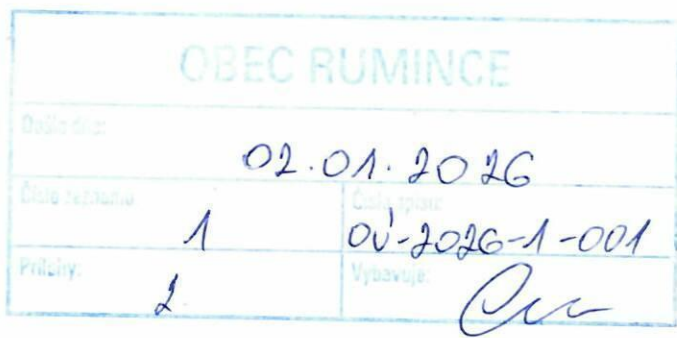 OBEC RUMINCE
Došlo dňa:
02.01.2026
Číslo záznamu
Číslo spisu:
1
OÚ-2026-1-001
Prílohy:
Vybavuje:
2